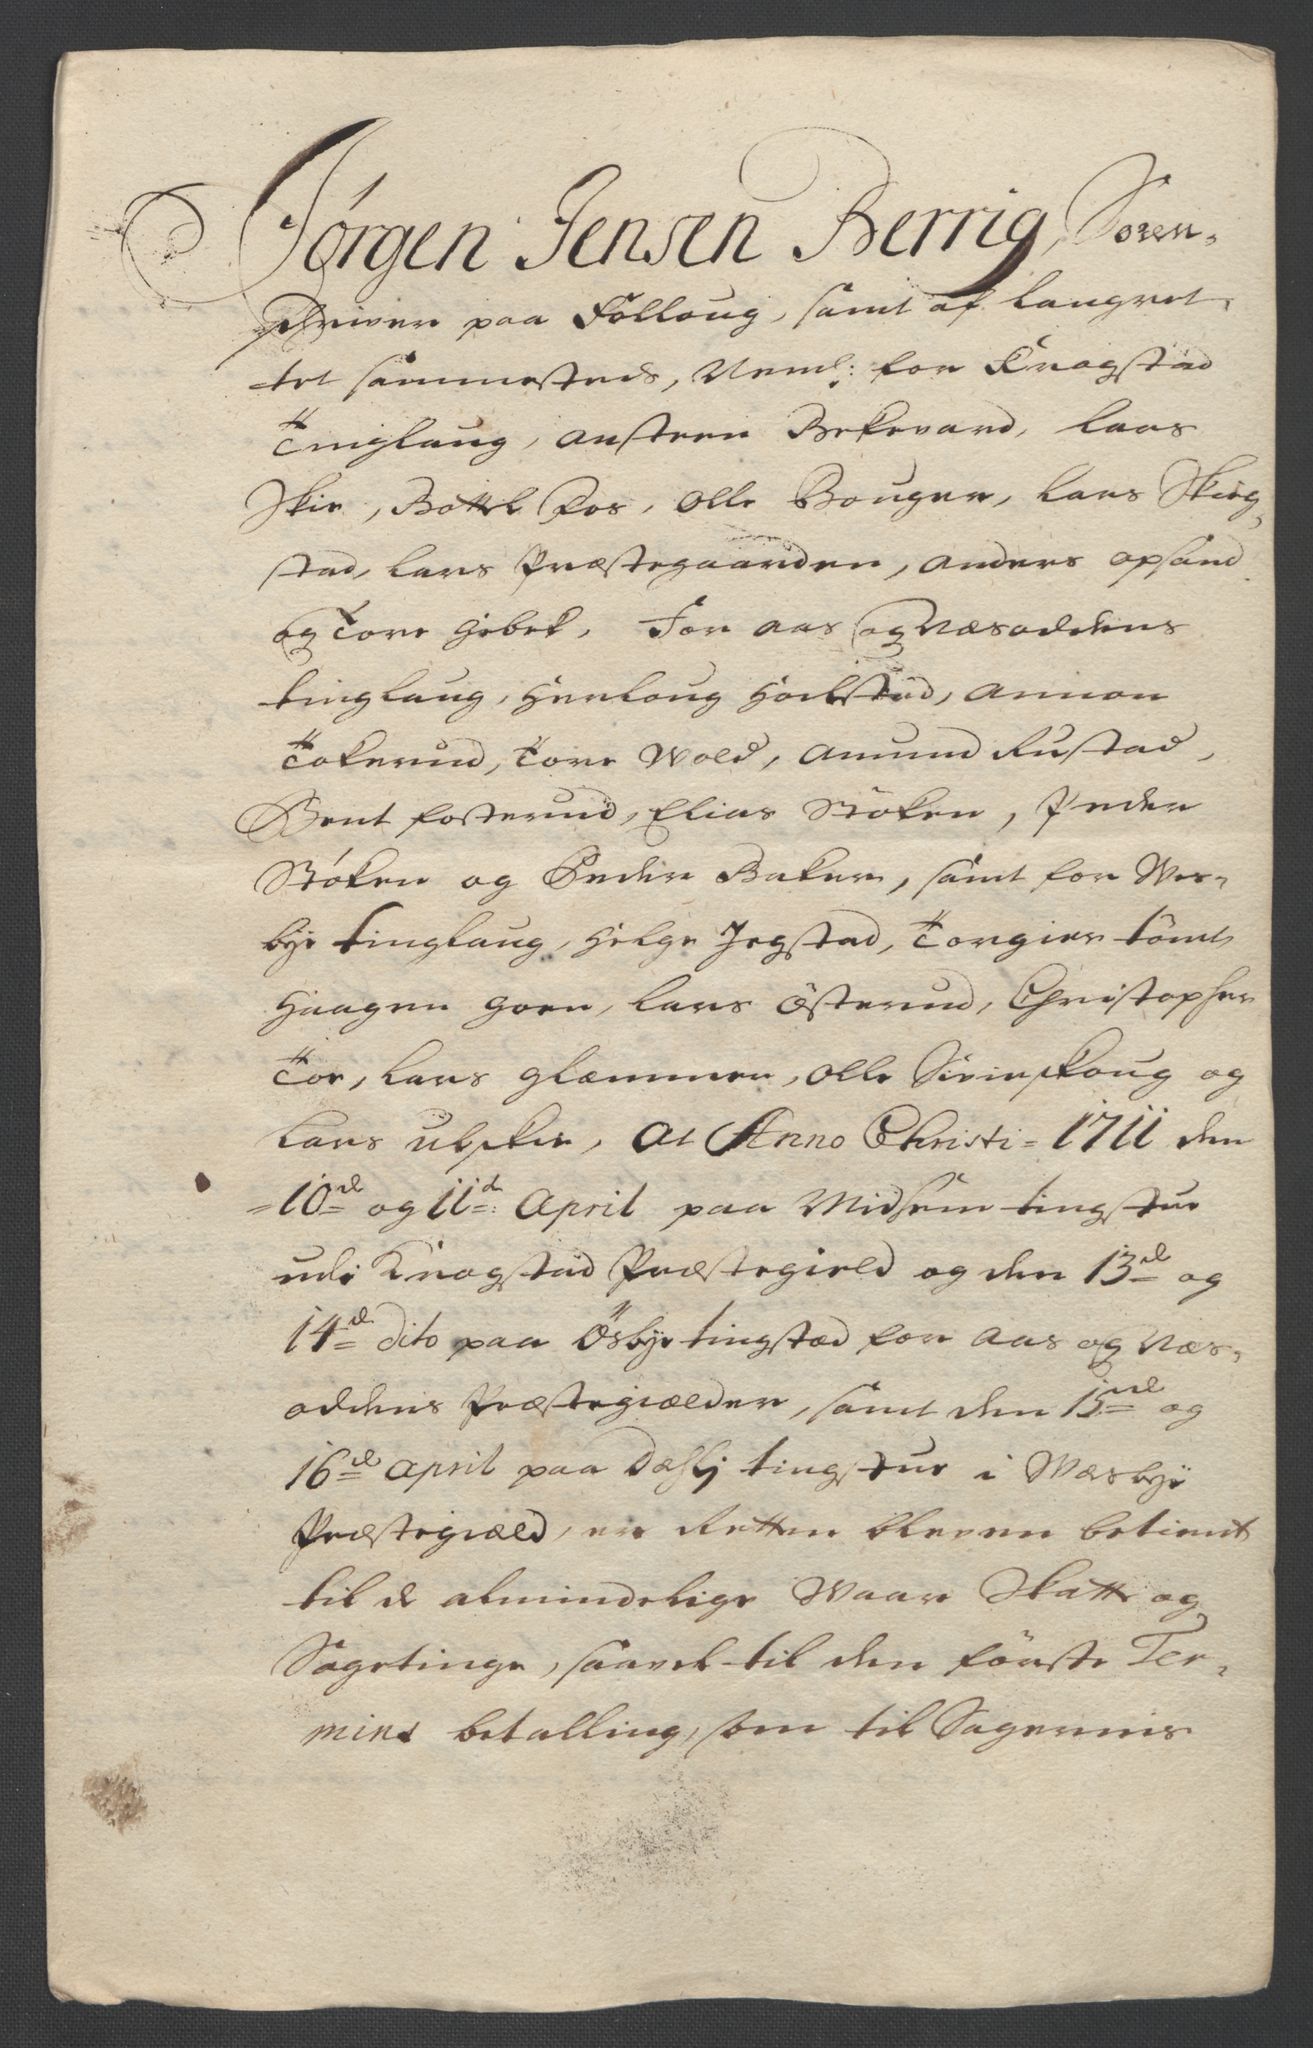 Jørgen Jensen Berrig, Soren-
schriver paa Folloug, samt af Laugret-
tet sammesteds, Neml: for Kragstad
Tinglaug, Austeen Bekevard, Lars
Skie, Bottel Fos, Olle Bouger, Lars Skieg-
stad, Lars Præstegaarden, Anders Opsand
og Tore Hebek, For Aas og Næsoddens
tinglaug, Herloug Holstad, Amon
Tokerud, Tore Wold, Amund Rustad,
Bent Fosterud, Elias Støken, Peder
Støken og Peder Baker, samt for Wes-
bye tinglaug, Helge Jegstad, Torgier tømt
Haagen Goen, Lars Østerud, Christopher
Toe, Lars Glæmmen, Olle Sivieskoug og
Lars Ulskie, At Anno Christi = 1711 den
= 10de og 11de: April paa Midsem tingstue
udi Kragstad Præstegield og den 13de og
14de dito paa Øsbye tingstæd for Aas og Næs-
oddens Præstegiælder, samt den 15de og
16de April paa Dæhlj tingstue i Wæsbye
Præstegiæld, er Retten bleven betient
til de almindelige Waar Skatte og
Sagetinge, saavel til den første Ter-
mins betalling, som til Sagernis